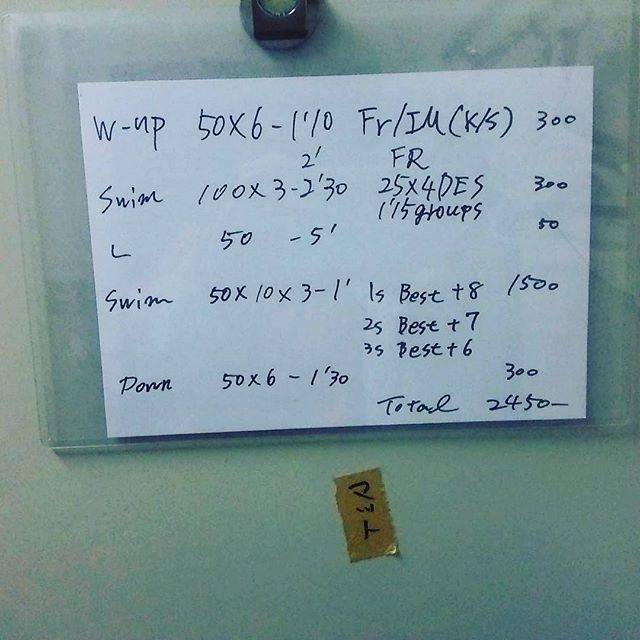 W-up 50×6-1'10 Fr/IM(K/S) 300
2' FR
Swim 100×3-2'30 25×4DES 300
1'15groups
L 50 -5' 50
Swim 50×10×3-1' 1s Best+8 1500
2s Best+7
3s Best+6
Down 50×6-1'30 300
Total 2450-